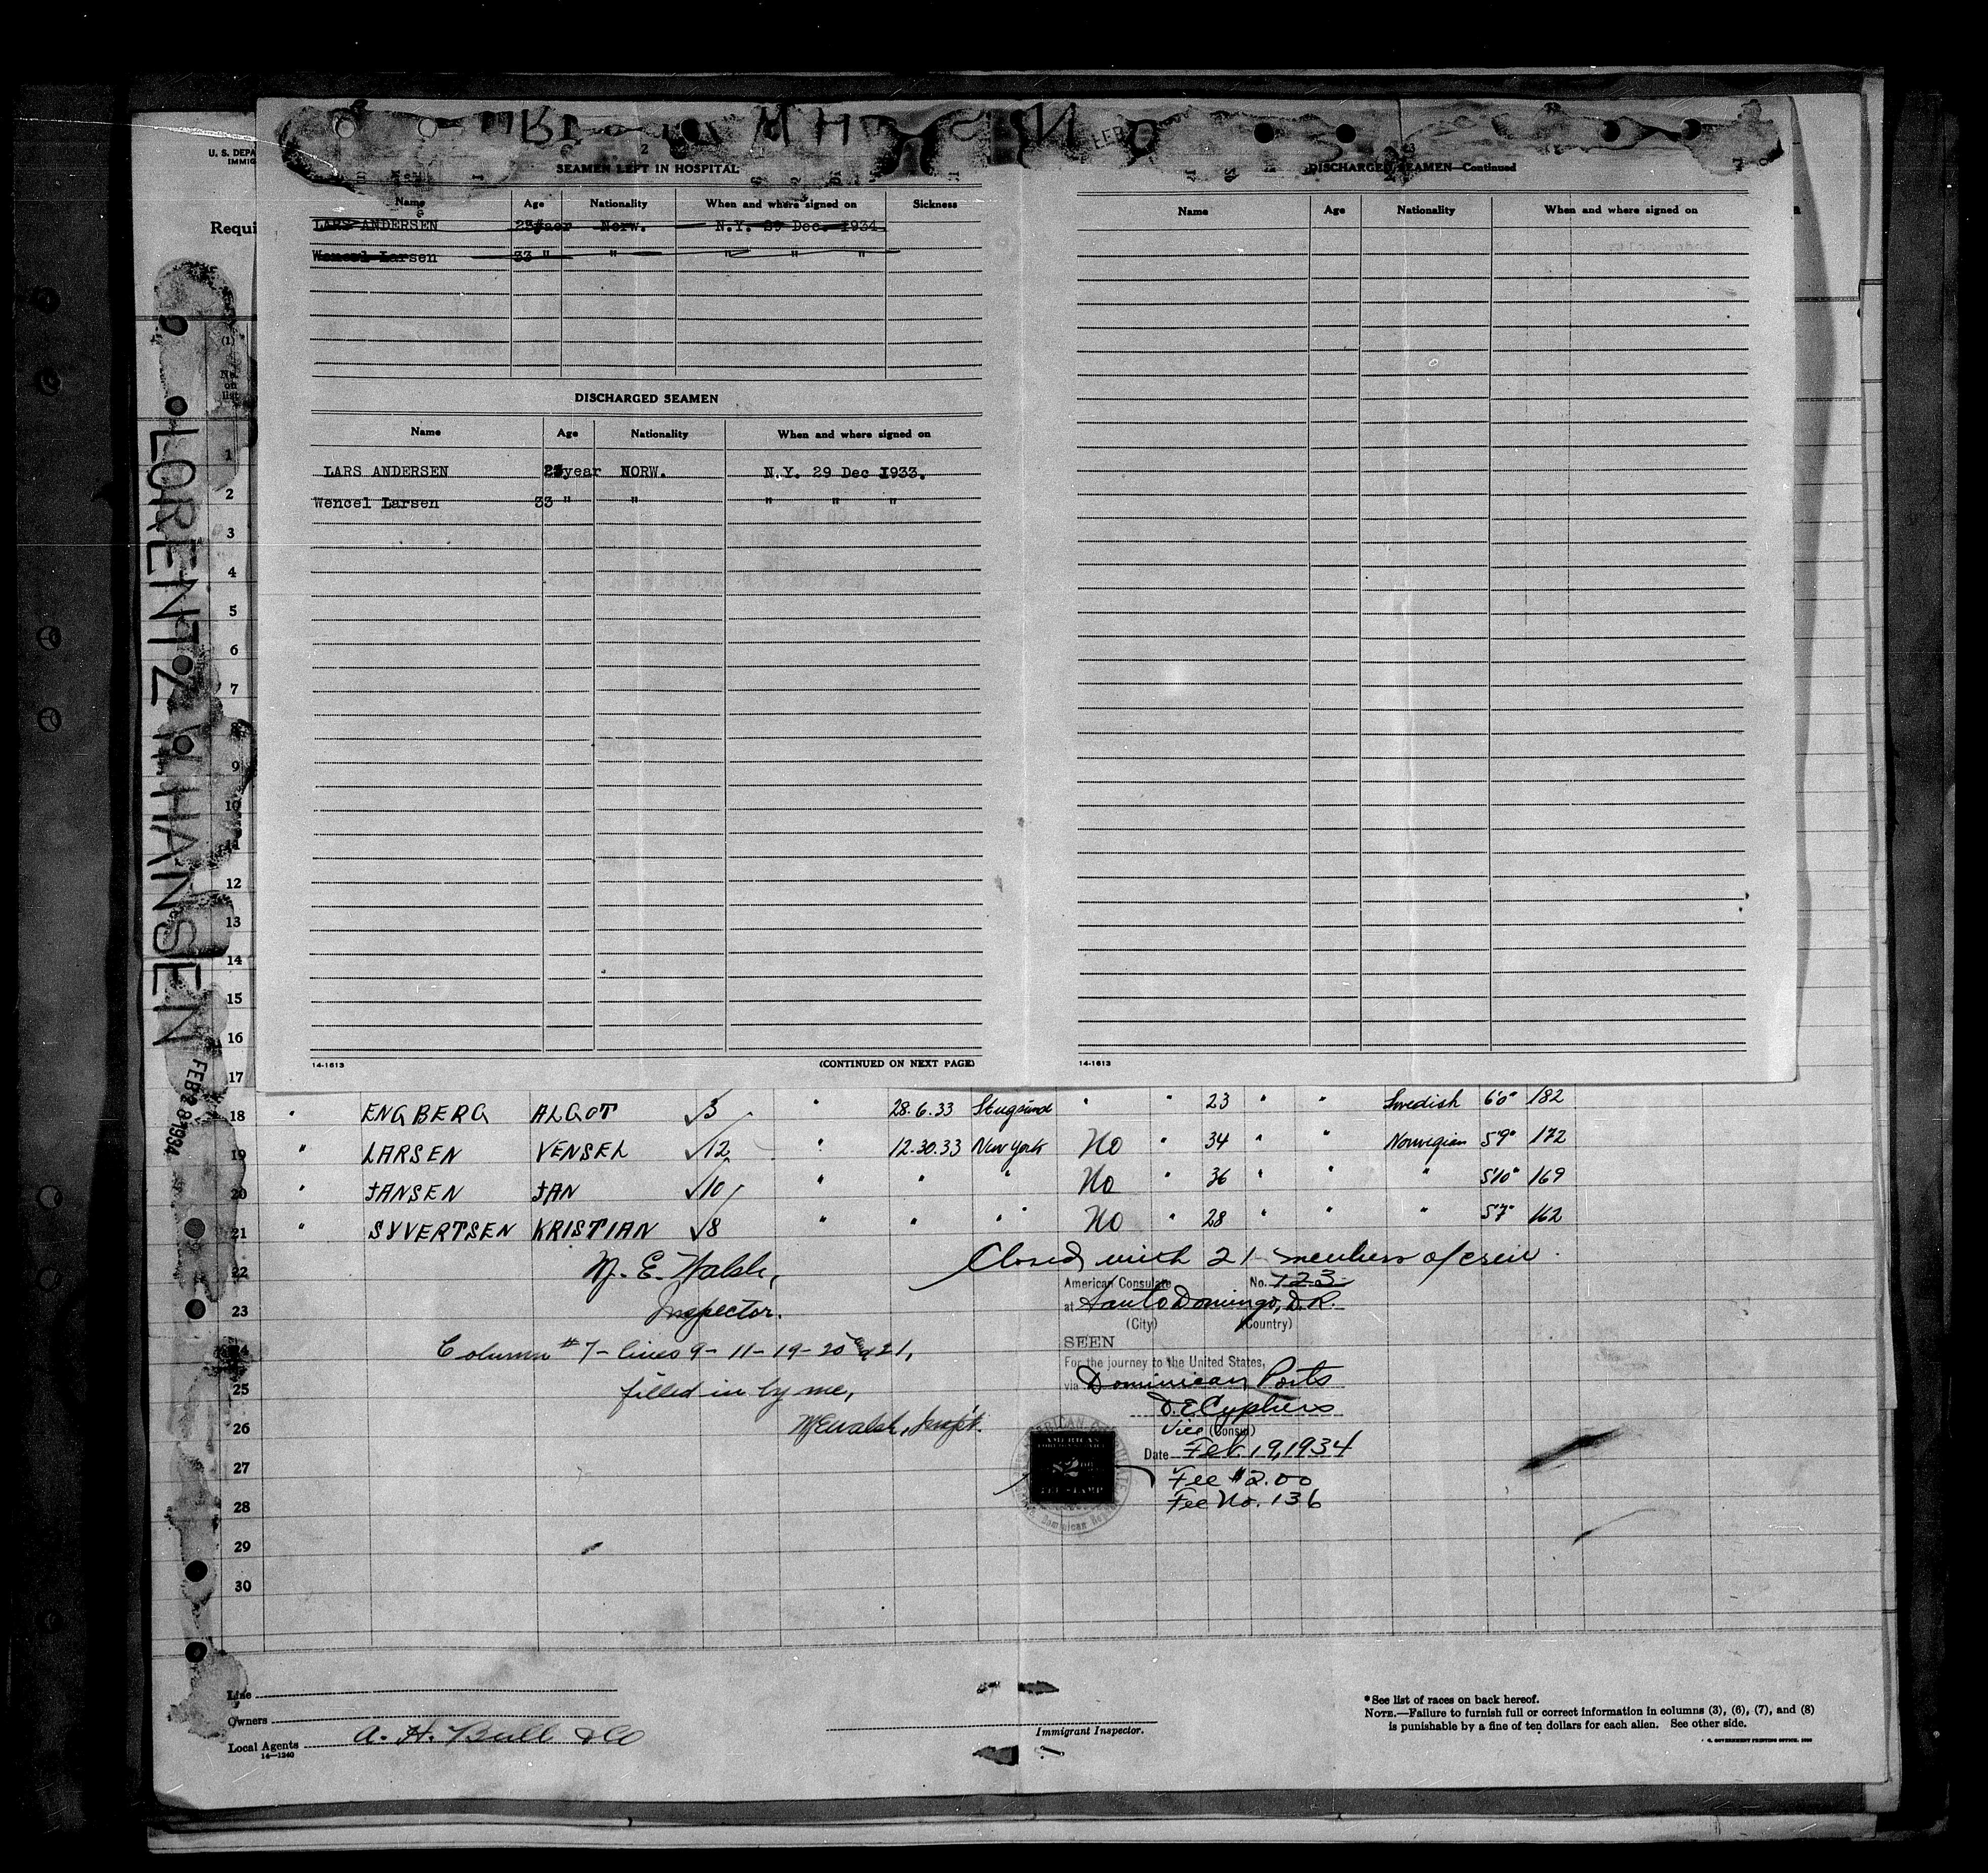 U. S. DEPA
IMMIG
Requi
SEAMEN LEFT IN HOSPITAL
Name Age Nationality When and where signed on Sickness
LARS ANDERSEN Norw. N.Y. 29 Dec. 1934.
Wencel Larsen 33 " " " " "
DISCHARGED SEAMEN
Name Age Nationality When and where signed on
LARS ANDERSEN year NORW. N.Y. 29 Dec 1933.
Wencel Larsen 33 " " " " "
(CONTINUED ON NEXT PAGE)
14-1613
DISCHARGED SEAMEN—Continued
Name Age Nationality When and where signed on
14-1613
LORENTZ W HANSEN
FEB 28 1934
(1)
No. on list
1
2
3
4
5
6
7
8
9
10
11
12
13
14
15
16
17
18 " ENGBERG ALGOT √3 " 28.6.33 Stugsund " " 23 " " Swedish 6'0" 182
19 " LARSEN VENSEL √12 " 12.30.33 New York No " 34 " " Norwegian 5'9" 172
20 " JANSEN JAN √10 " " " No " 36 " " " 5'10" 169
21 " SYVERTSEN KRISTIAN √8 " " " " No " 28 " " " 5'7" 162
22
23
24
25
26
27
28
29
30
M. E. Walsh,
Inspector.
Column #7 - lines 9 - 11 - 19 - 20 & 21,
filled in by me,
MEWalsh, Insp't.
Closed with 21 members of crew.
American Consulate No. 123
at Santo Domingo, D.R.
(City) (Country)
SEEN
For the journey to the United States,
via Dominican Ports
D.E.Cyphers
Vice (Consul)
Date Feb. 19, 1934
Fee $2.00
Fee No. 136
Line
Owners
Local Agents A. H. Bull & Co
14—1240
Immigrant Inspector.
*See list of races on back hereof.
NOTE.—Failure to furnish full or correct information in columns (3), (6), (7), and (8)
is punishable by a fine of ten dollars for each alien. See other side.